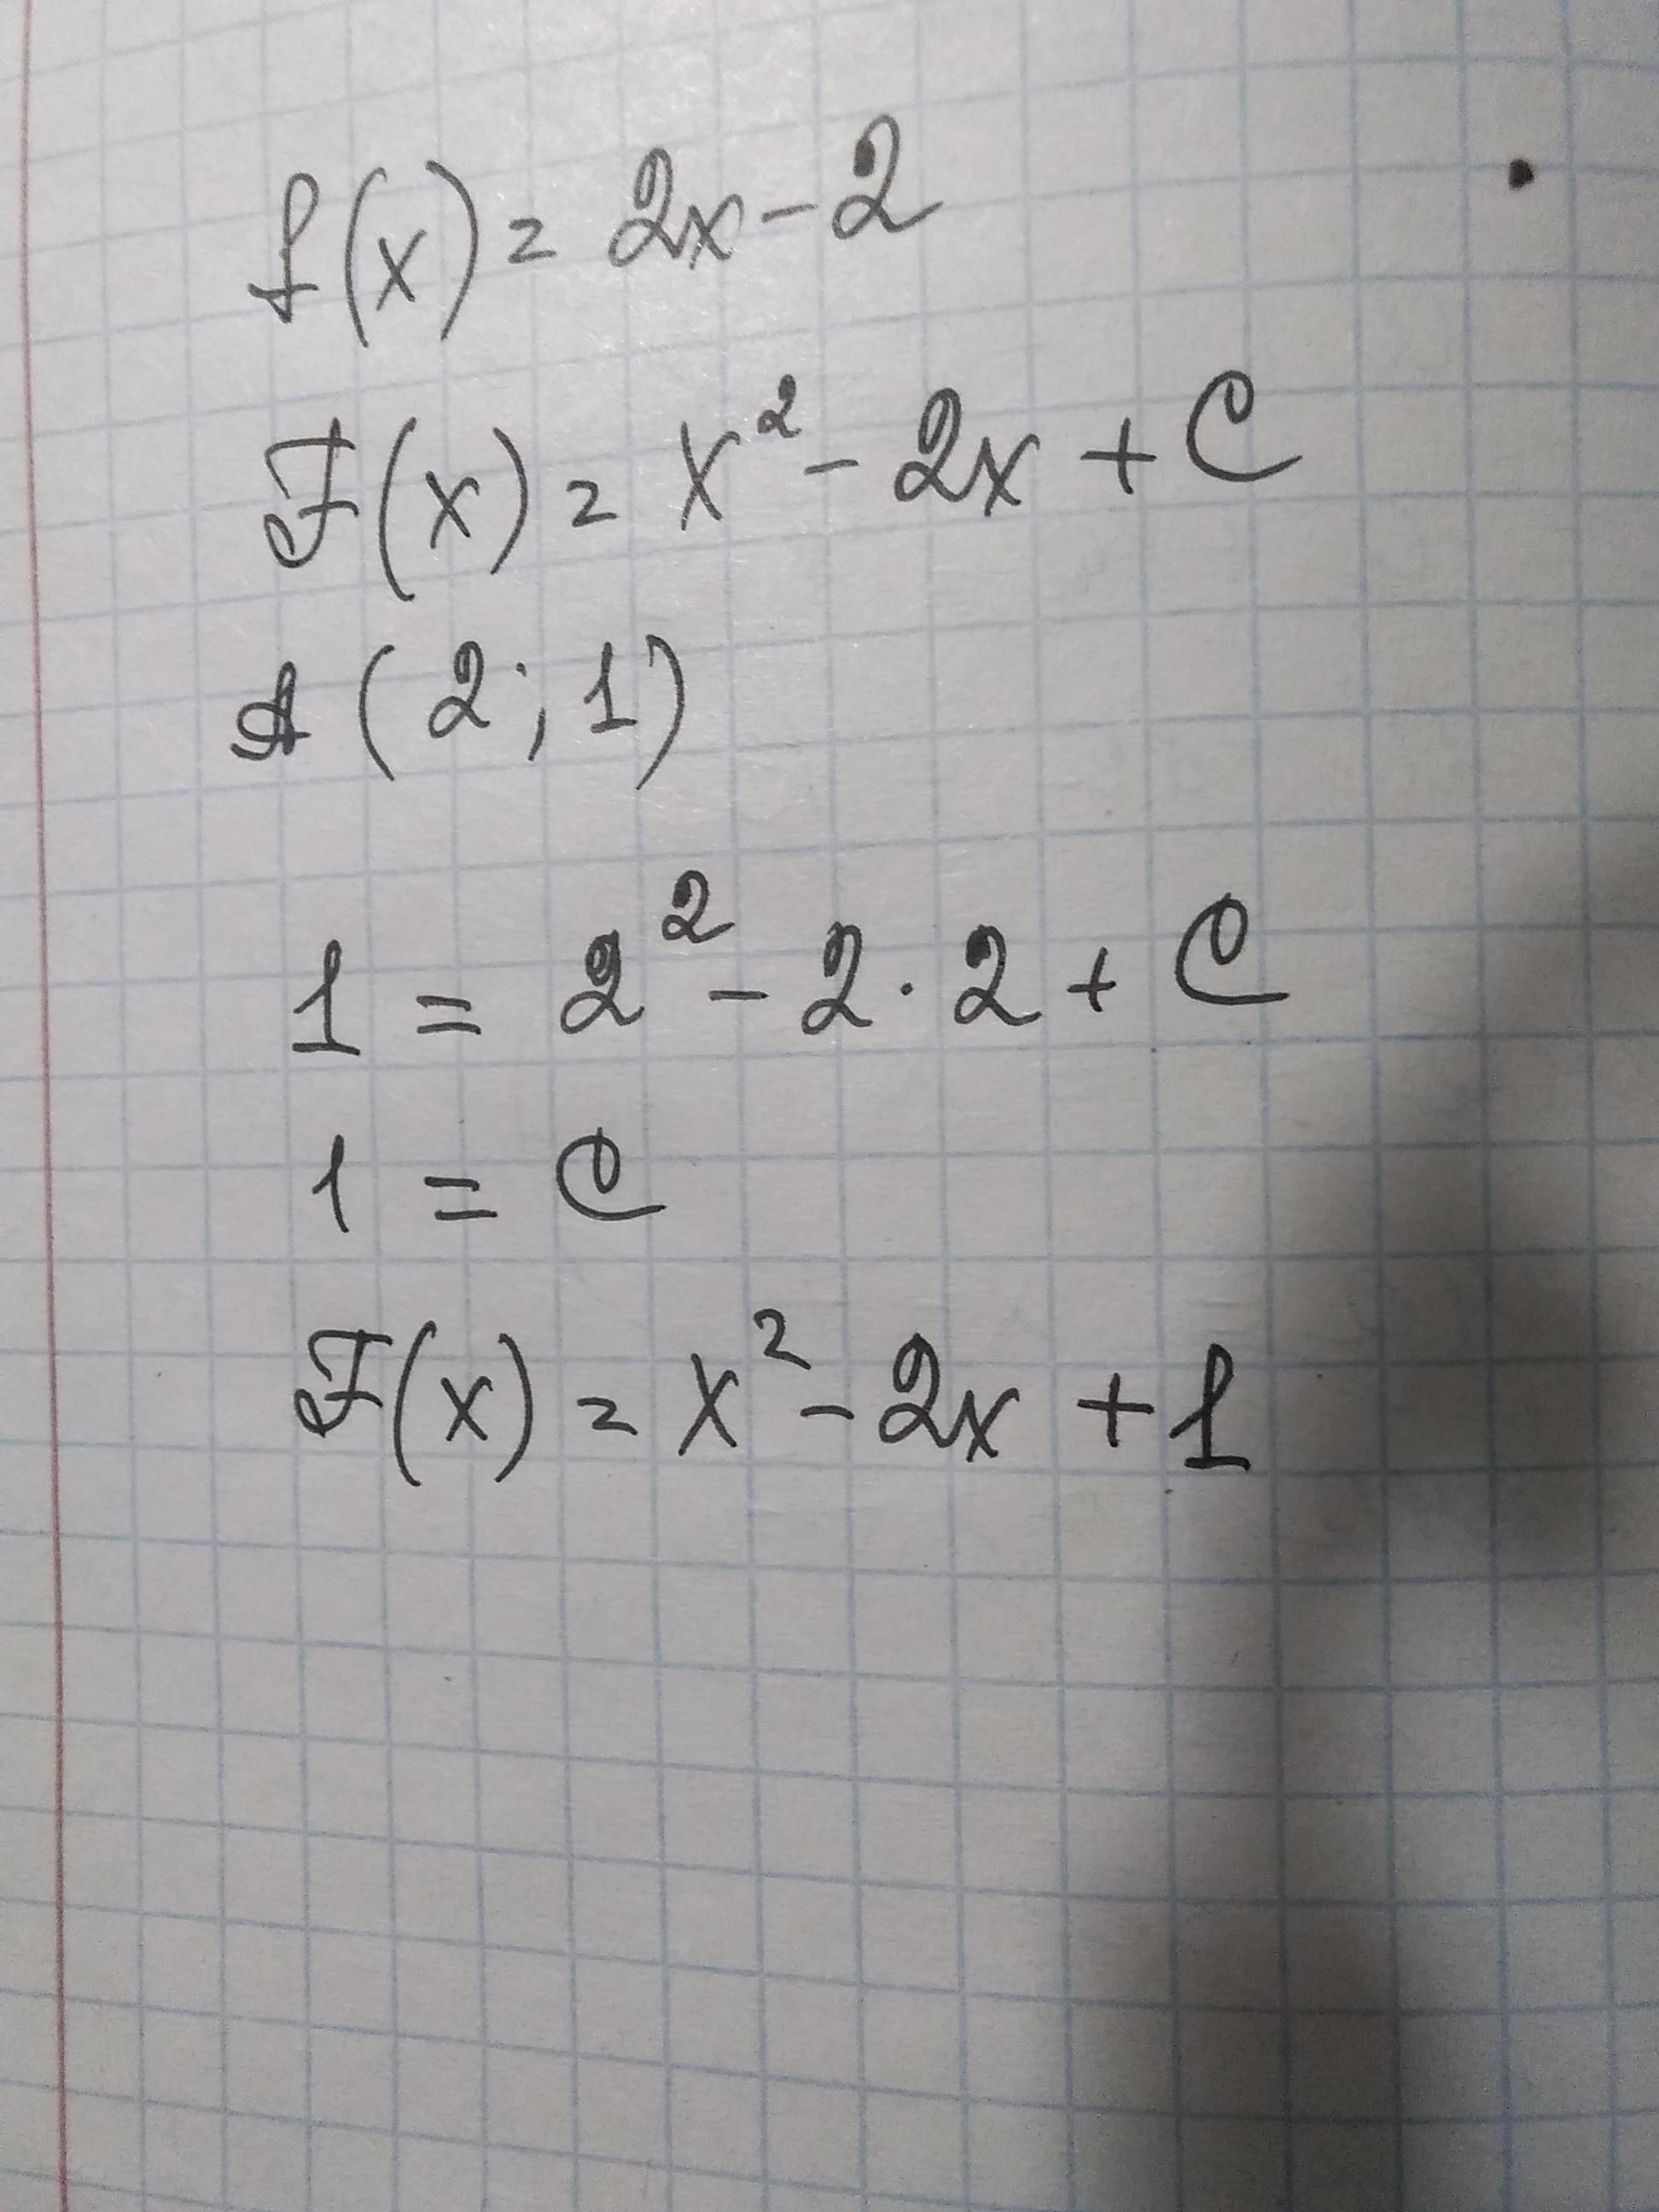 f(x) = 2x - 2
F(x) = x² - 2x + C
A (2; 1)
1 = 2² - 2 · 2 + C
1 = C
F(x) = x² - 2x + 1